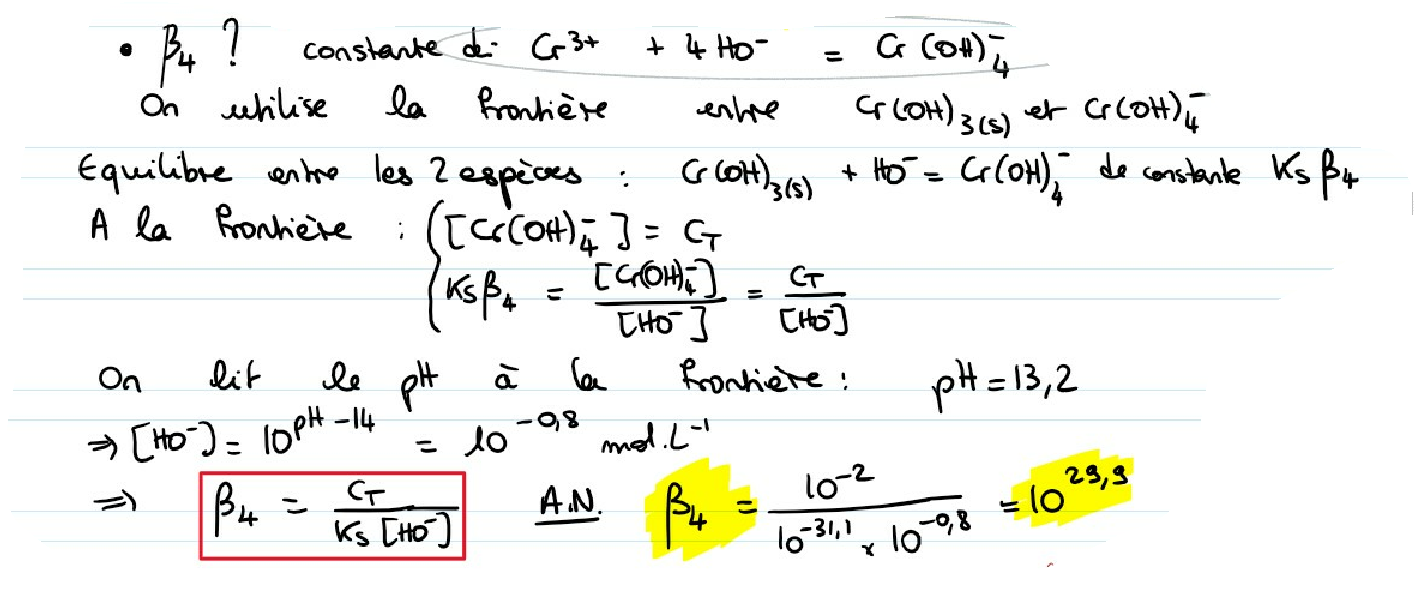 • β₄ ? constante de Cr³⁺ + 4 HO⁻ = Cr(OH)₄⁻
On utilise la frontière entre Cr(OH)₃(s) et Cr(OH)₄⁻
Equilibre entre les 2 espèces : Cr(OH)₃(s) + HO⁻ = Cr(OH)₄⁻ de constante Ks β₄
A la frontière : { [Cr(OH)₄⁻] = C_T
Ksβ₄ = [Cr(OH)₄⁻] / [HO⁻] = C_T / [HO⁻]
On lit le pH à la frontière : pH = 13,2
⇒ [HO⁻] = 10^(pH-14) = 10^(-0,8) mol.L⁻¹
⇒ β₄ = C_T / (Ks [HO⁻]) A.N. β₄ = 10⁻² / (10^(-31,1) × 10^(-0,8)) = 10^(29,9)